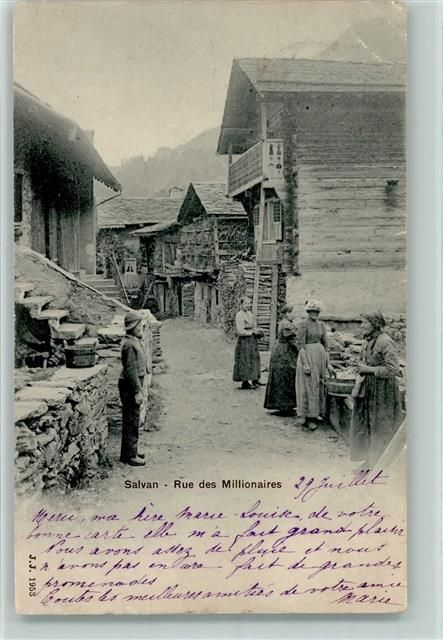 Salvan - Rue des Millionaires
29 Juillet
Merci, ma chère Marie-Louise, de votre
bonne carte elle m'a fait grand plaisir
Nous avons assez de pluie et nous
n'avons pas encore fait de grandes
promenades
Toutes les meilleures amitiés de votre amie
Marie
J. J. 1953